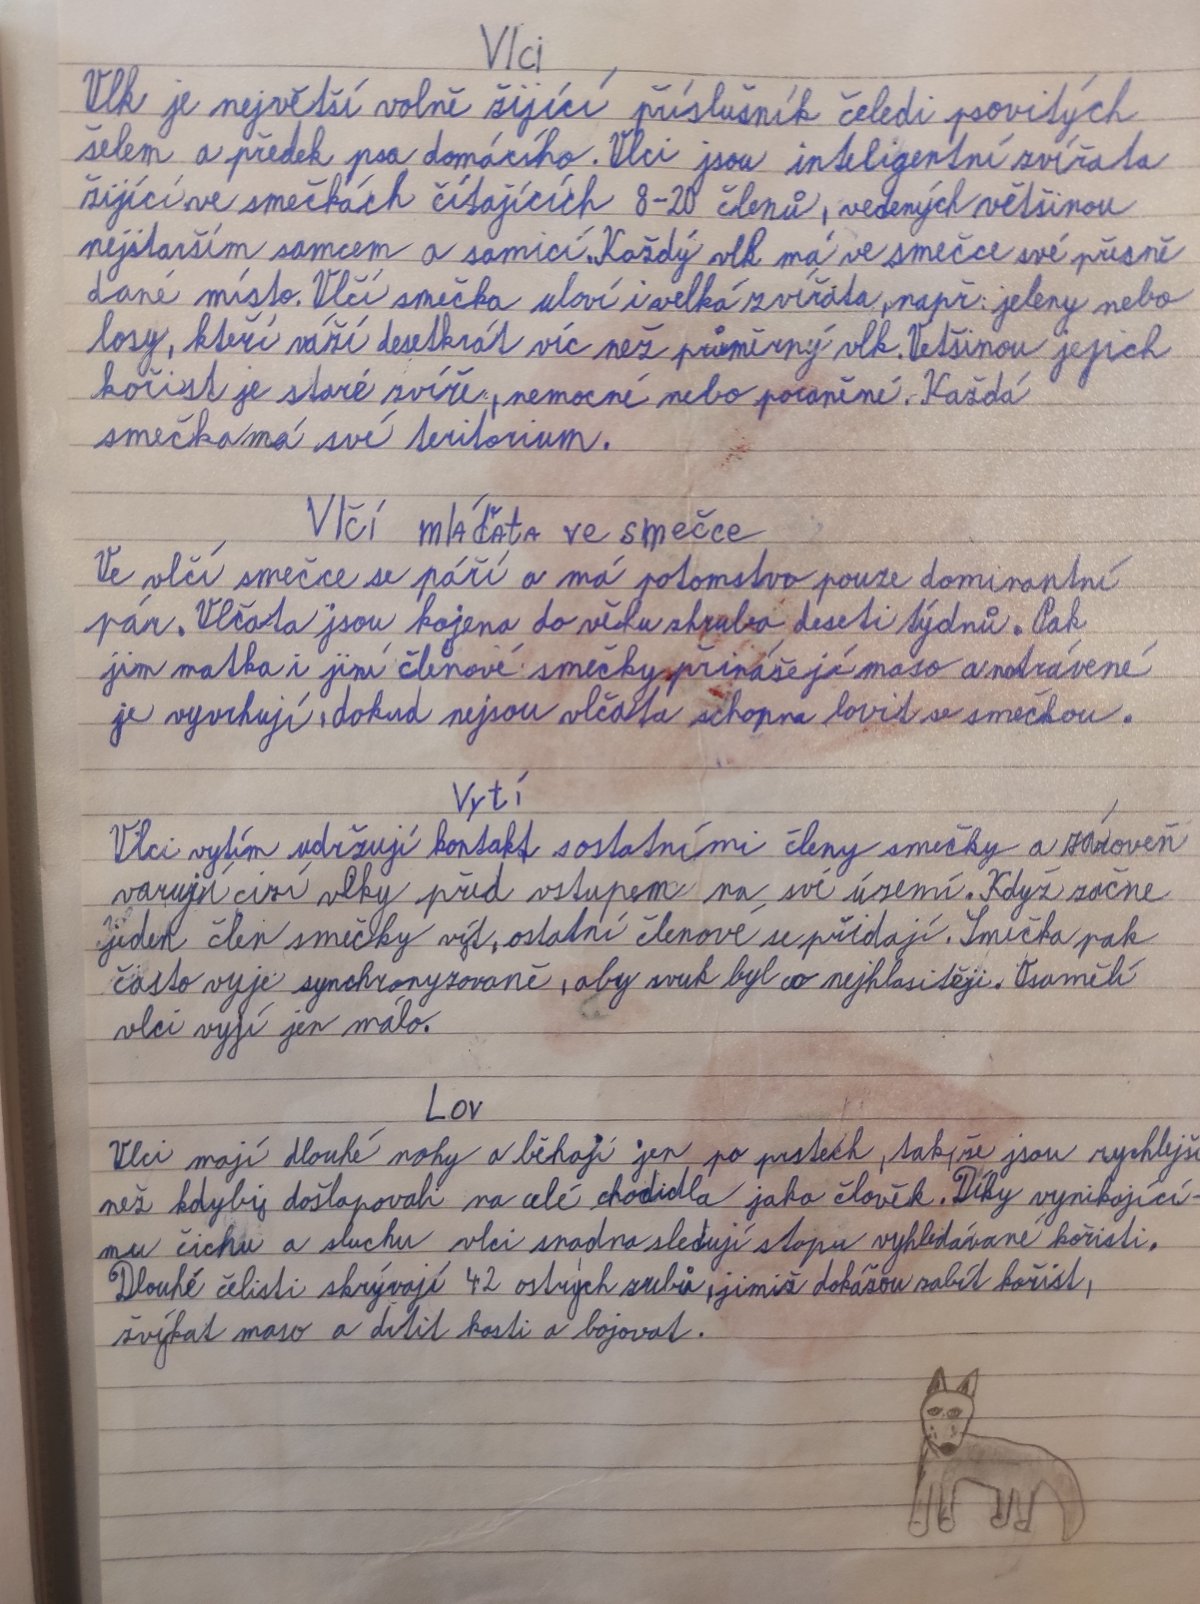 Vlci
Vlk je největší volně žijící příslušník čeledi psovitých
šelem a předek psa domácího. Vlci jsou inteligentní zvířata
žijící ve smečkách čítajících 8-20 členů, vedených většinou
nejstarším samcem a samicí. Každý vlk má ve smečce své přesně
dané místo. Vlčí smečka uloví i velká zvířata, např. jeleny nebo
losy, kteří váží desetkrát víc než průměrný vlk. Většinou jejich
kořist je staré zvíře, nemocné nebo poraněné. Každá
smečka má své teritorium.
Vlčí mláďata ve smečce
Ve vlčí smečce se páří a má potomstvo pouze dominantní
pár. Vlčata jsou kojena do věku zhruba deseti týdnů. Pak
jim matka i jiní členové smečky přinášejí maso a natrávené
je vyvrhují, dokud nejsou vlčata schopna lovit se smečkou.
Vytí
Vlci vytím udržují kontakt s ostatními členy smečky a zároveň
varují cizí vlky před vstupem na své území. Když začne
jeden člen smečky výt, ostatní členové se přidají. Smečka pak
často vyje synchronyzovaně, aby zvuk byl co nejhlasitěji. Osamělí
vlci vyjí jen málo.
Lov
Vlci mají dlouhé nohy a běhají jen po prstech, takže jsou rychlejší
než kdyby došlapovali na celé chodidla jako člověk. Díky vynikající-
mu čichu a sluchu vlci snadno sledují stopu vyhlédávané kořisti.
Dlouhé čelisti skrývají 42 ostrých zubů, jimiž dokážou zabít kořist,
žvýkat maso a drtit kosti a bojovat.